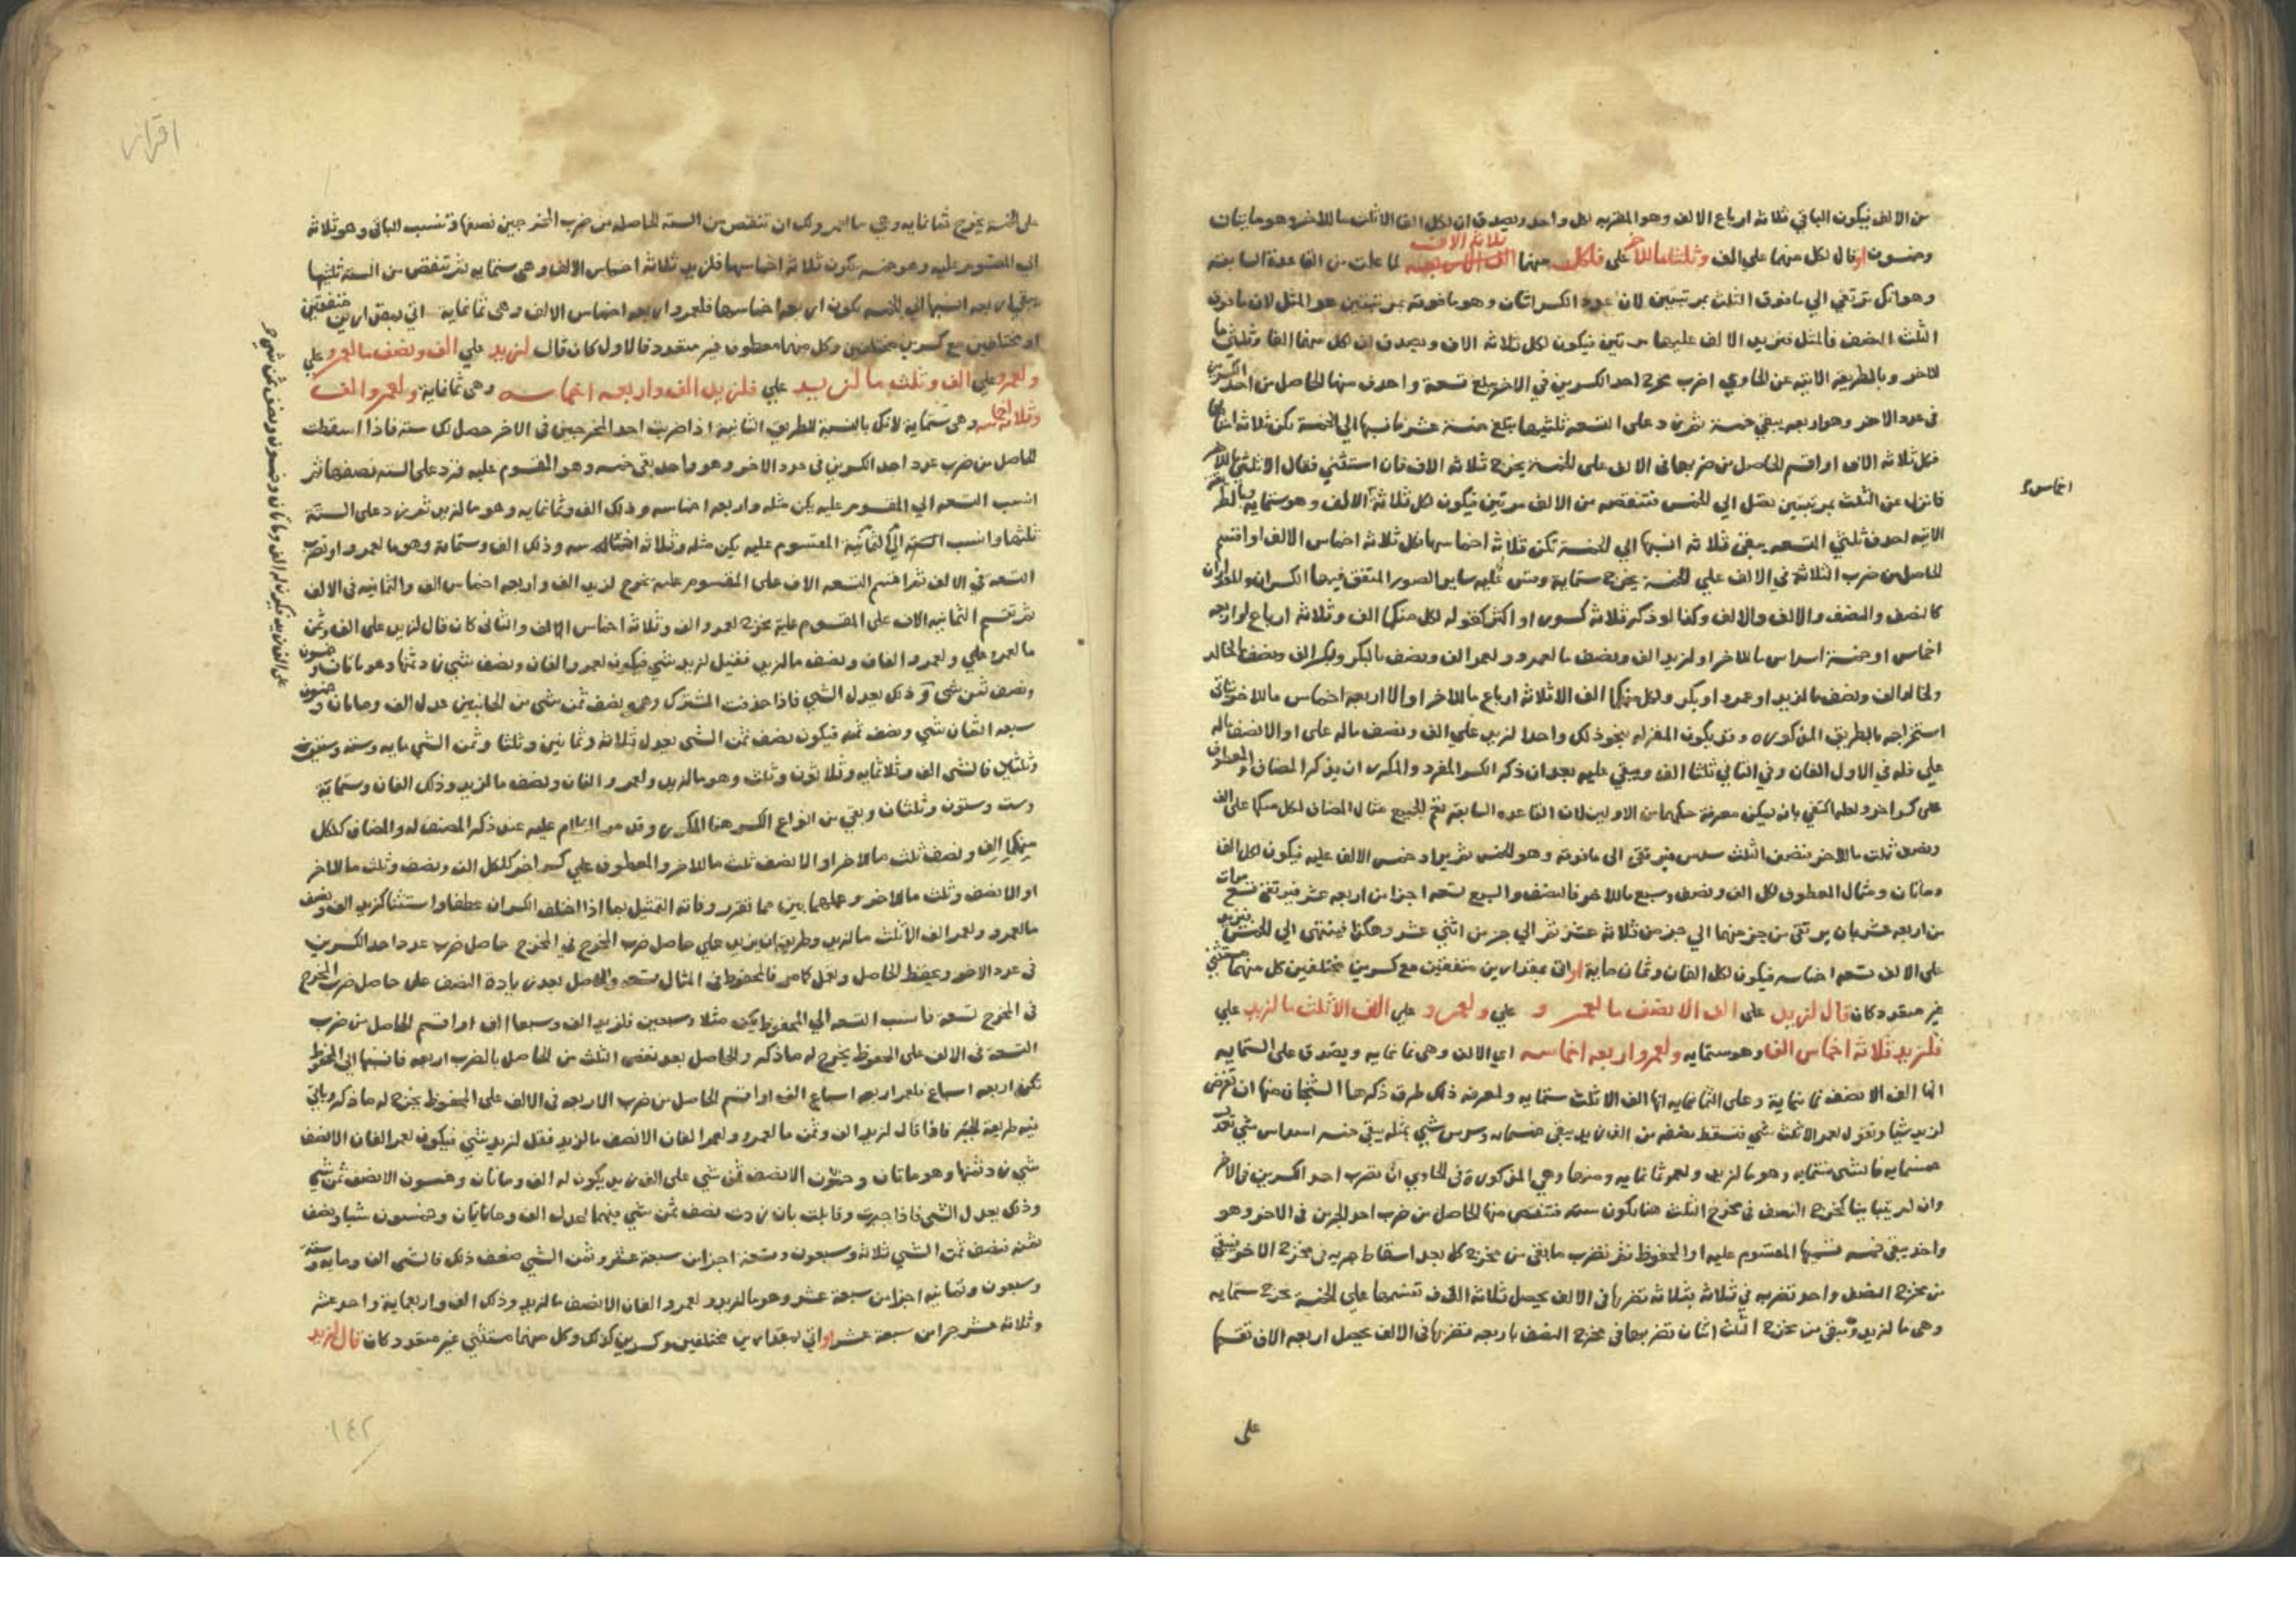 من الالف فيكون الباقي ثلاثة ارباع الالف وهو المقر به لكل واحد ويصدق ان لكل الفا الا ثلث ما للاخر وهو مايتان
وخمسون او قال لكل منهما علي الف وثلثا ما للاخر علي فلكل منهما ثلاثة الاف لما علمت من القاعدة السابقة
وهو انك ترتقي الي ما فوق الثلث بمرتبتين لان عدد الكسر اثنان وهو ما فوقه بمرتبتين هو المثل لان ما فوق
الثلث النصف فالمثل فتزيد الالف عليها مرتين فيكون لكل ثلاثة الاف ويصدق ان لكل منهما الفا وثلثي ما
للاخر وبالطريقة الاتية عن الحاوي اضرب مخرج احد الكسرين في الاخر يبلغ تسعة واحذف منها الحاصل من احد الكسرين
في عدد الاخر وهو اربعة يبقي خمسة ثم زد على التسعة ثلثيها يبلغ خمسة عشر فانسبها الي الخمسة تكن ثلاثة امثالها
فلكل ثلاثة الاف او اقسم الحاصل من ضربها في الالف على الخمسة يخرج ثلاثة الاف فان استثني فقال الا ثلثي ما للاخر
فانزل عن الثلث بمرتبتين تصل الي الخمس فتنقصه من الالف مرتين فيكون لكل ثلاثة الالف وهو ستماية وبالطريقة
اخماس
الاتية احذف ثلثي التسعة يبقى ثلاثة انسبها الي الخمسة تكن ثلاثة اخماسها فلكل ثلاثة اخماس الالف او اقسم
الحاصل من ضرب الثلاثة في الالف علي الخمسة يخرج ستماية وقس عليه ساير الصور المتفق فيها الكسران والمقداران
كالنصف والنصف والالف والالف وكذا لو ذكر ثلاثة كسور او اكثر كقوله لكل منهما الف وثلاثة ارباع او اربعة
اخماس او خمسة اسداس ما للاخر او لزيد الف ونصف ما لعمرو ولعمرو الف ونصف ما لبكر ولبكر الف ونصف ما لخالد
ولخالد الف ونصف ما لزيد او عمرو او بكر ولكل منهما الف الا ثلاثة ارباع ما للاخر او الا اربعة اخماس ما للاخر
استخراجه بالطريق المذكورة وقد يكون المقر له بنحو ذلك واحدا لزيد علي الف ونصف ماله على او الا نصف ماله
علي فله في الاول الفان وفي الثاني ثلثا الف وبقي عليه بعد ان ذكر الكسر المفرد والمكرر ان يذكر المضاف والمعطوف
على كسر اخر ولعله اكتفي بان يمكن معرفة حكمهما من الاولين لان القاعدة السابقة تعم الجميع مثال المضاف لكل منهما على الف
ونصف ثلث ما للاخر فنصف الثلث سدس فترتقي الى ما فوقه وهو الخمس ثم يزاد خمس الالف عليه فيكون لكل الف
ومايتان ومثال المعطوف لكل الف ونصف وسبع ما للاخر فالنصف والسبع تسعة اجزا من اربعة عشر فترتقي تسع مرات
من اربعة عشر بان يرتقي من جز منها الي جز من ثلاثة عشر ثم الي جز من اثني عشر وهكذا فينتهي الي الخمس فتزيد
على الالف تسعة اخماسه فيكون لكل الفان وثمان ماية او اتي بمقدارين متفقين مع كسرين مختلفين كل منهما مستثني
غير معقود كان قال لزيد على الف الا نصف ما لعمرو علي ولعمرو علي الف الا ثلث ما لزيد علي
فلزيد ثلاثة اخماس الف وهو ستمايه ولعمرو اربعة اخماسه اي الالف وهي ثمانمايه ويصدق على الستمايه
انها الف الا نصف ثمانمايه وعلى الثمانمايه انها الف الا ثلث ستمايه ولمعرفة ذلك طرق ذكرها الشيخان منها ان تفرض
لزيد شيا وتقول لعمرو الف الا ثلث شي فتسقط نصفه من الف زيد يبقى خمسمايه وسدس شي يعدل شيا يبقى خمسة اسداس شي تعدل
خمسمايه فالشي ستمايه وهو ما لزيد ولعمرو ثمانمايه ومنها وهي المذكورة في الحاوي ان تضرب احد الكسرين في الاخر
وان لم يتباينا كمخرج النصف في مخرج الثلث هنا يكون ستة فتنقص منها الحاصل من ضرب احد الجزين في الاخر وهو
واحد يبقى خمسة تسميها المقسوم عليه او المحفوظ ثم تضرب ما بقي من مخرج كل بعد اسقاط جزيه في مخرج الاخر فيبقي
من مخرج النصف واحد تضربه في ثلاثة بثلاثة تضربها في الالف يحصل ثلاثة الاف تقسمها علي الخمسة يخرج ستمايه
وهي ما لزيد ويبقى من مخرج الثلث اثنان تضربهما في مخرج النصف باربعة تضربها في الالف يحصل اربعة الاف تقسمها
علي
اقرار
على الخمسة يخرج ثمانمايه وهي ما لعمرو ولك ان تنقص من الستة الحاصلة من ضرب المخرجين نصفها وتنسب الباقي وهو ثلاثة
الي المقسوم عليه وهو خمسة يكون ثلاثة اخماسها فلزيد ثلاثة اخماس الالف وهي ستمايه ثم تنقص من الستة ثلثها
يبقي اربعة انسبها الي الخمسة تكون اربعة اخماسها فلعمرو اربعة اخماس الالف وهي ثمانماية اتي بمقدارين متفقين
او مختلفين مع كسرين مختلفين وكل منهما معطوف غير معقود فالاول كان قال لزيد علي الف ونصف ما لعمرو علي
ولعمرو علي الف وثلث ما لزيد علي فلزيد الف واربعة اخماسه وهي ثمانماية ولعمرو الف
وثلاثة اخماسه وهي ستماية لانك بالنسبة للطريق الثانية اذا ضربت احد المخرجين في الاخر حصل لك ستة فاذا اسقطت
الحاصل من ضرب عدد احد الكسرين في عدد الاخر وهو واحد بقي خمسة وهو المقسوم عليه فزد على الستة نصفها ثم
انسب التسعة الي المقسوم عليه يكن مثله واربعة اخماسه وذلك الف وثمانمايه وهو ما لزيد ثم زد على الستة
ثلثها وانسب الثمانية المقسوم عليه يكن مثله وثلاثة اخماسه وذلك الف وستماية وهو ما لعمرو او تضرب
التسعة في الالف ثم اقسم التسعة الاف على المقسوم عليه يخرج لزيد الف واربعة اخماس الف والثمانية في الالف
ثم تقسم الثمانيه الاف على المقسوم عليه يخرج لعمرو الف وثلاثة اخماس الالف والثاني كان قال لزيد على الف وثمن
ما لعمرو علي ولعمرو الفان ونصف ما لزيد فقيل لزيد شي فيكون لعمرو الفان ونصف شي زد ثمنها وهو مايتان وخمسون
ونصف ثمن شي وذلك يعدل الشي فاذا حذفت المشترك وهو نصف ثمن شي من الجانبين عدل الف ومايتان وخمسون
سبعة اثمان شي ونصف ثمنه فيكون نصف ثمن الشي يعدل ثلاثة وثمانين وثلثا وثمن الشي مايه وستة وستون
وثلثين فالشي الف وثلاثمايه وثلاثون وثلث وهو ما لزيد ولعمرو الفان ونصف ما لزيد وذلك الفان وستماية
وست وستون وثلثان وبقي من انواع الكسر هنا المكرر وقد مر الكلام عليه عند ذكر المصنف له والمضاف كلكل
منهما الف ونصف ثلث ما للاخر او الا نصف ثلث ما للاخر والمعطوف علي كسر اخر كلكل الف ونصف وثلث ما للاخر
او الا نصف وثلث ما للاخر وعملهما بين مما تقرر وفاته التمثيل بما اذا اختلف الكسران عطفا واستثنا كزيد الف ونصف
ما لعمرو ولعمرو الف الا ثلث ما لزيد وطريقه ان يزيد علي حاصل ضرب المخرج في المخرج حاصل ضرب عدد احد الكسرين
في عدد الاخر ويحفظ الحاصل ويعمل كما مر فالمحفوظ في المثال سبعة والحاصل بعد زيادة النصف على حاصل ضرب المخرج
في المخرج تسعة فانسب التسعة الي المحفوظ يكن مثلا وسبعين فلزيد الف وسبعا الف او اقسم الحاصل من ضرب
التسعة في الالف على المحفوظ يخرج له ما ذكر والحاصل بعد نقص الثلث من الحاصل بالضرب اربعة فانسبها الي المحفوظ
تكن اربعة اسباع فلعمرو اربعة اسباع الف او اقسم الحاصل من ضرب الاربعة في الالف على المحفوظ يخرج له ما ذكر وياتي
فيه طريقة الجبر فاذا قال لزيد الف وثمن ما لعمرو ولعمرو الفان الا نصف ما لزيد فقل لزيد شي فيكون لعمرو الفان الا نصف
شي زد ثمنها وهو مايتان وخمسون الا نصف ثمن شي على الف زيد يكون له الف ومايتان وخمسون الا نصف ثمن شي
وذلك يعدل الشي فاذا جبرت وقابلت بان زدت نصف ثمن شي بينهما لعدل الف ومايتان وخمسون شيا ونصف
ثمنه فنصف ثمن الشي ثلاثة وسبعون وتسعة اجزا من سبعة عشر وثمن الشي ضعف ذلك فالشي الف ومايه وستة
وسبعون وثمانية اجزا من سبعة عشر وهو ما لزيد ولعمرو الفان الا نصف ما لزيد وذلك الف واربعماية واحد عشر
وثلاثة عشر جزا من سبعة عشر او اتي بمقدارين مختلفين وكسرين كذلك وكل منهما مستثني غير معقود كان قال لزيد
١٤٢